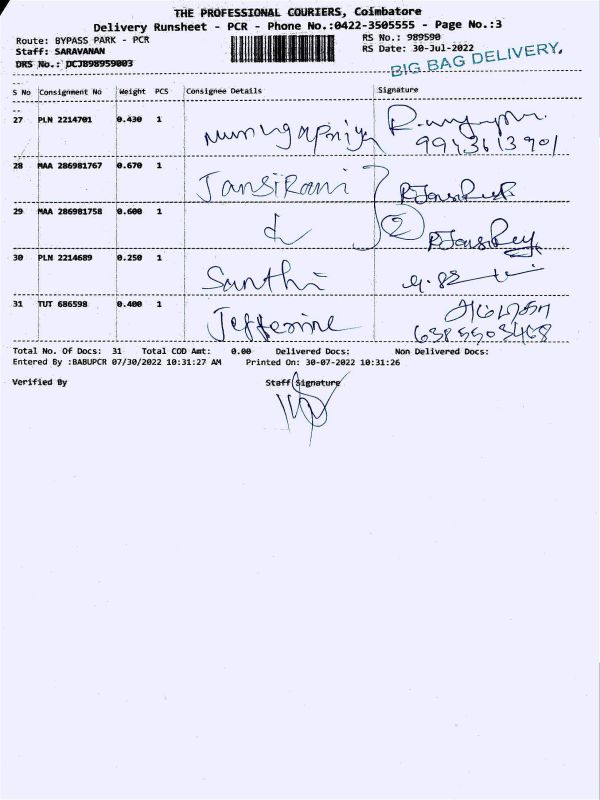 THE PROFESSIONAL COURIERS, Coimbatore
Delivery Runsheet - PCR - Phone No.:0422-3505555 - Page No.:3
Route: BYPASS PARK - PCR
RS No.: 989590
Staff: SARAVANAN
RS Date: 30-Jul-2022
DRS No.: DCJB98959003
BIG BAG DELIVERY.
S No Consignment No Weight PCS Consignee Details Signature
27 PLN 2214701 0.430 1
28 MAA 286981767 0.670 1 JansiRani
29 MAA 286981758 0.600 1 2
30 PLN 2214689 0.250 1 Santhi
31 TUT 686598 0.400 1 Jefferine
6385503468
Total No. Of Docs: 31 Total COD Amt: 0.00 Delivered Docs: Non Delivered Docs:
Entered By :BABUPCR 07/30/2022 10:31:27 AM Printed On: 30-07-2022 10:31:26
Verified By Staff Signature